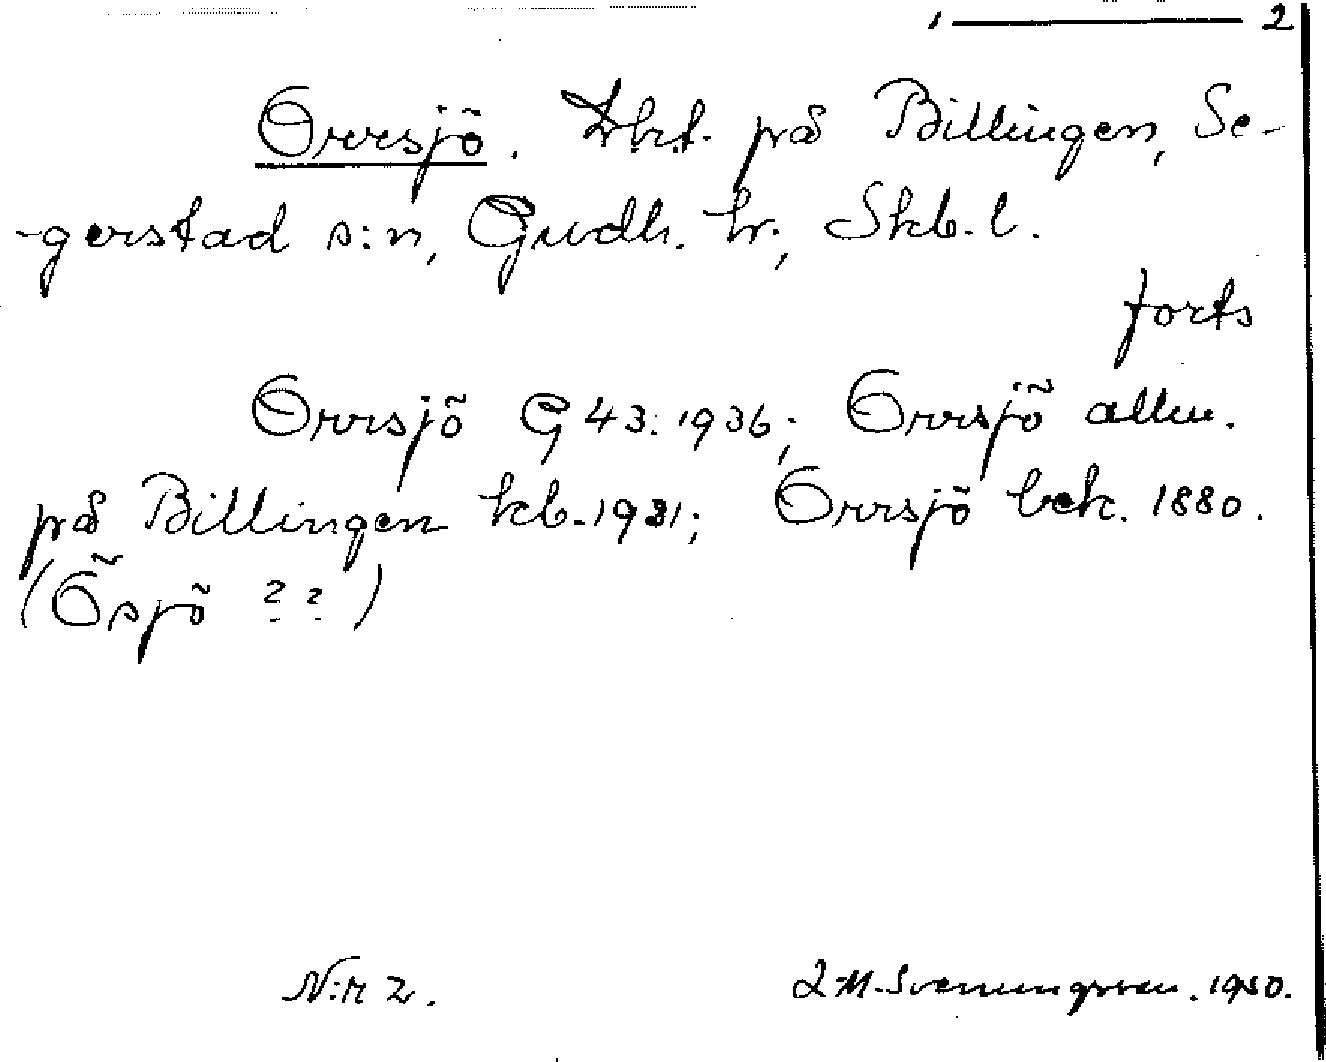 1 — 2
Orrsjö. Trkt. på Billingen, Se-
-gerstad s:n, Gudh. hr., Skb. l.
forts
Orrsjö G 43: 1936; Orrsjö allm.
på Billingen kb. 1931; Orrsjö bek. 1880.
(Ösjö ? ?)
N:r 2.
1950.